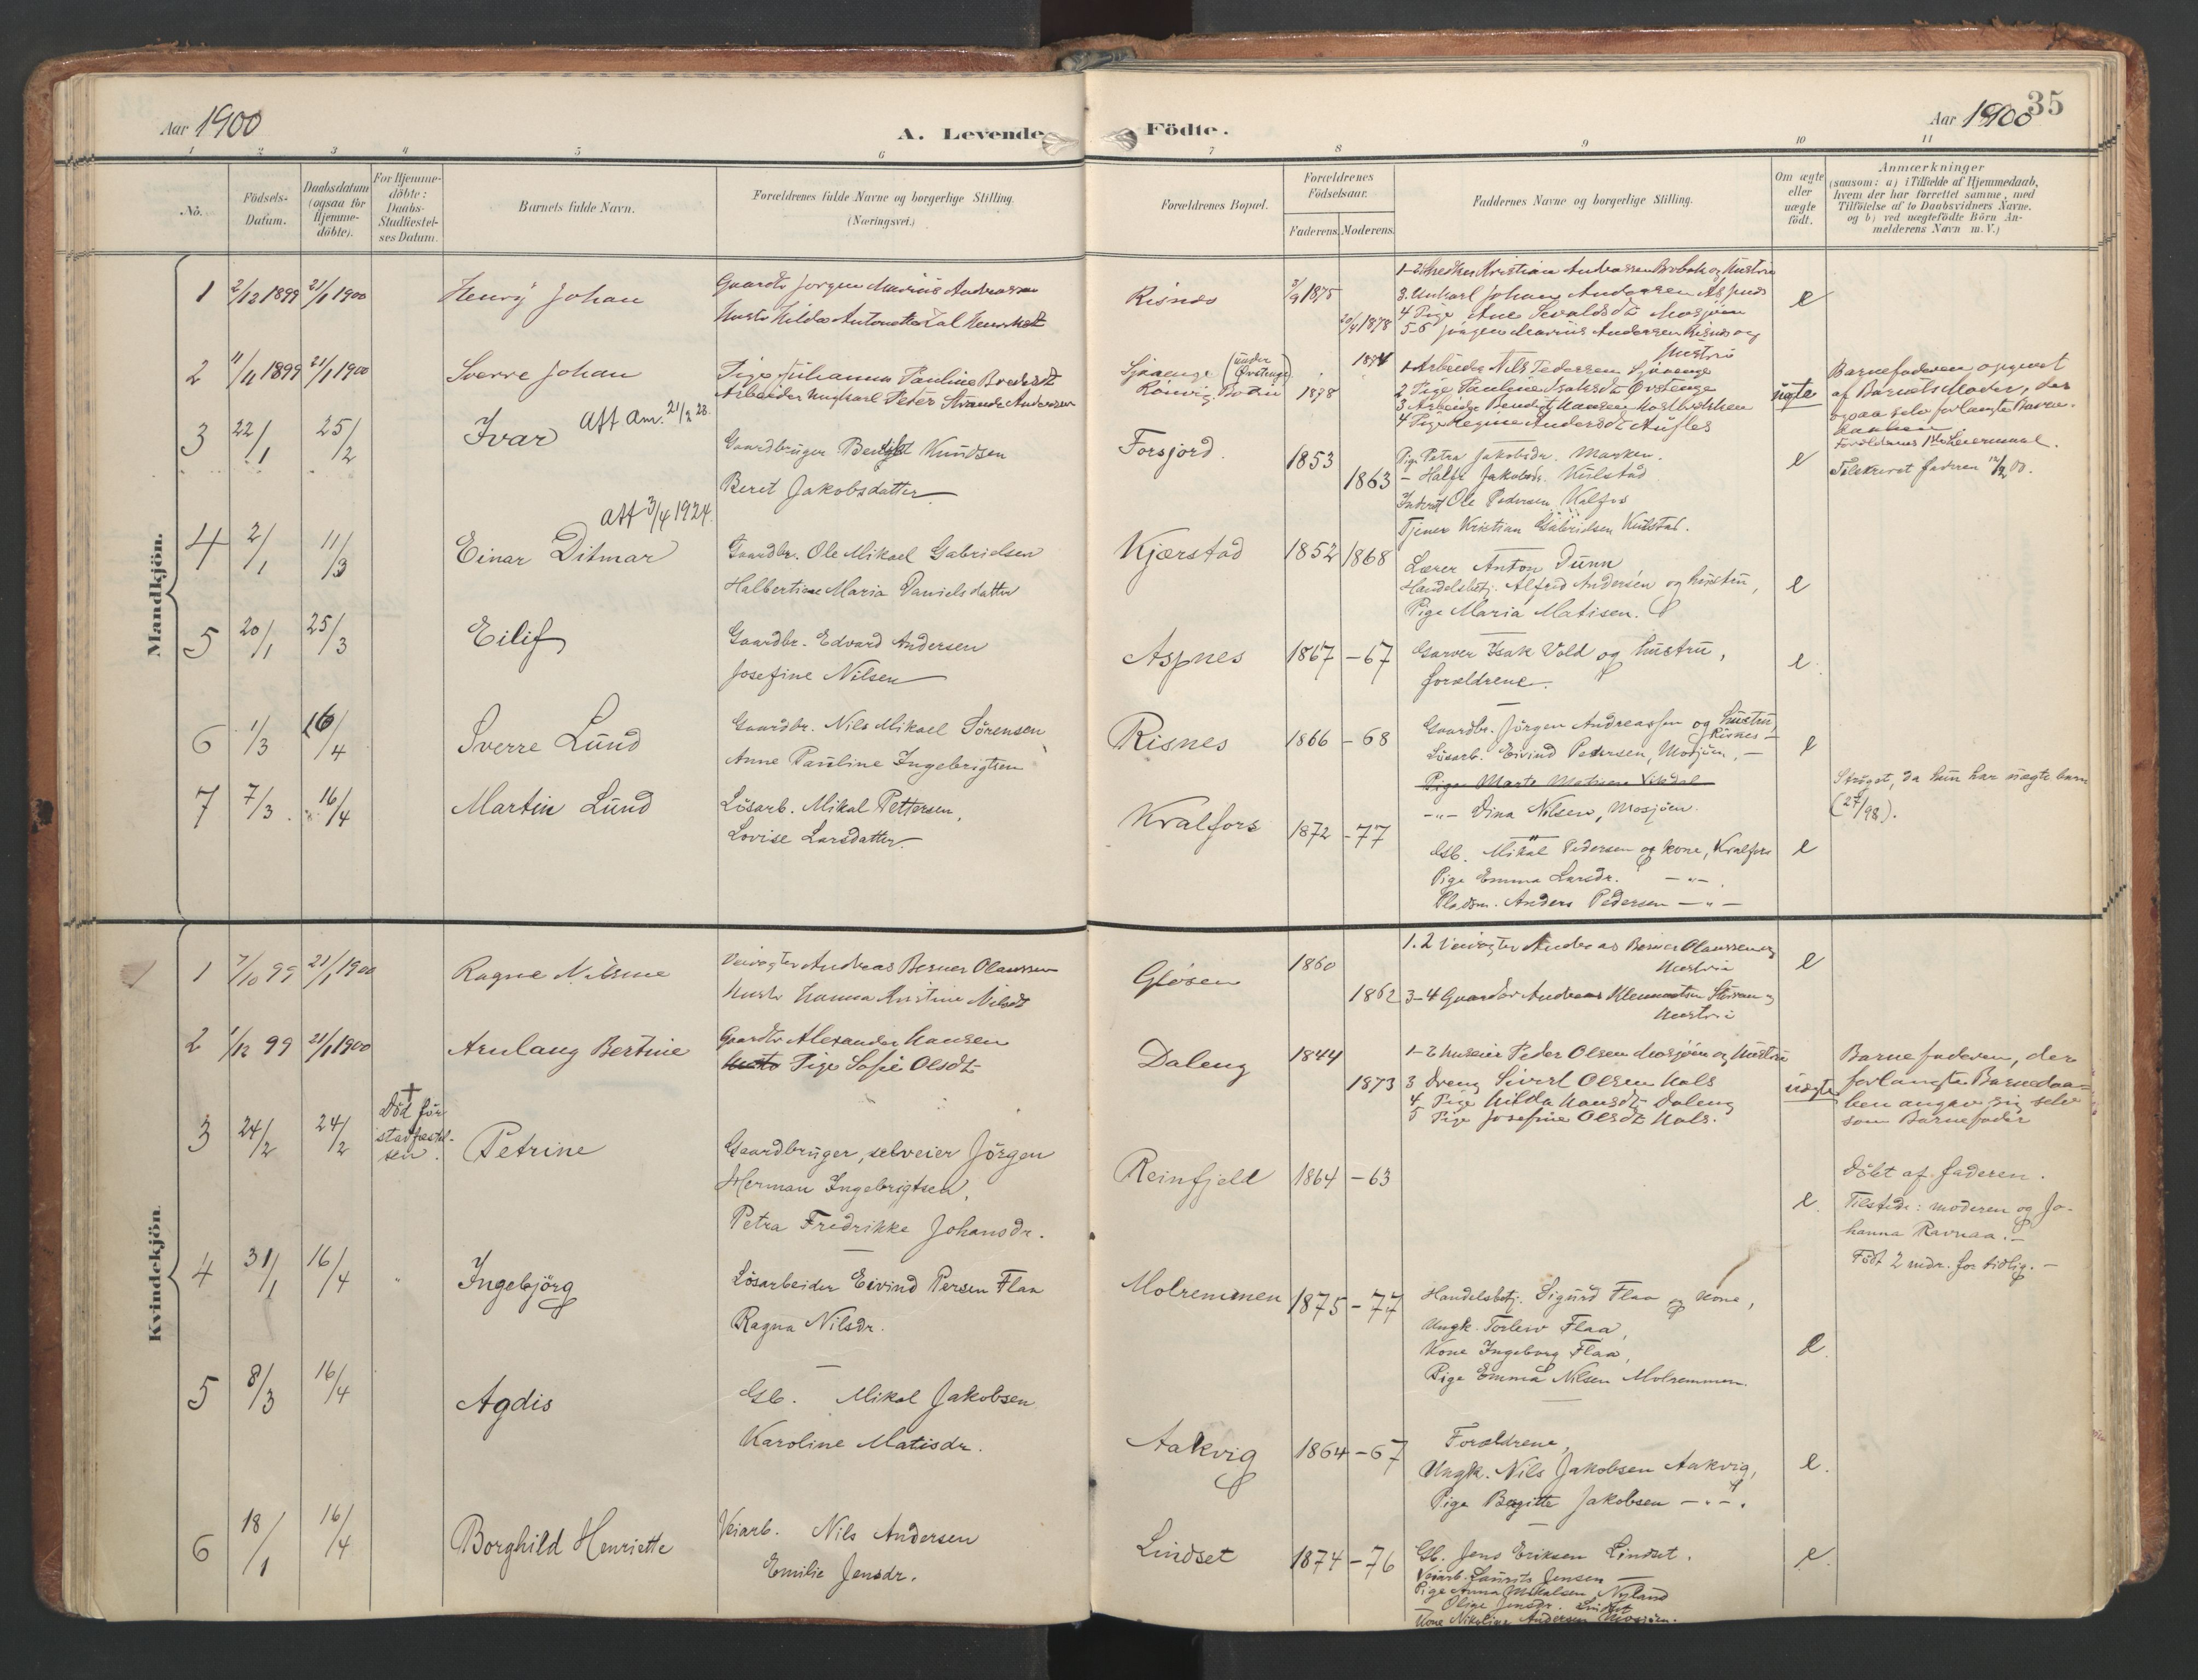 Aar 1900
A. Levende Födte.
Aar 1900 35
1 2 3 4 5 6 7 8 9 10 11
No.
Födsels-Datum.
Daabsdatum (ogsaa for Hjemme-döbte).
For Hjemme-döbte: Daabs-Stadfæstel-ses Datum.
Barnets fulde Navn.
Forældrenes fulde Navne og borgerlige Stilling.
(Næringsvei.)
Forældrenes Bopæl.
Forældrenes Födselsaar.
Faderens. Moderens.
Faddernes Navne og borgerlige Stilling.
Om ægte eller uægte födt.
Anmærkninger
(saasom: a) i Tilfælde af Hjemmedaab,
hvem der har forrettet samme, med
Tilföielse af to Daabsvidners Navne.
og b) ved uægtefödte Börn An-
melderens Navn m. V.)
Mandkjön.
1 2/12 1899 21/1 1900 Henry Johan
Gaardbr Jørgen Marius Andreassen
Risnes 3/9 1875 20/4 1878
3. Ungkarl Johan Andersen Aspnes
4 Pige Ane Sevaldsdt Mosjøen
5-6 Jørgen Marius Andersen Risnes og
Hustru
e
2 11/11 1899 21/1 1900 Sverre Johan
Pige Johanna Pauline
Arbeider Ungkarl Peder Strand Andersen
(under Øvstenge)
1874 1878
1 Arbeider Nils Pedersen
2 Pige Pauline Isaksdt Øvstenge
3 Arbeider Bendigt Hansen
4 Pige Regine Andersdt
uægte
Barnefaderen opgivet
af Barnets Moder, der
ogsaa selv forlangte Barne-
daaben.
Forældrenes 1ste Leiermaal.
3 22/1 25/2 Ivar Att am. 21/2 28.
Gaardbruger Bendigt Knudsen
Beret Jakobsdatter
Forsjord. 1853 1863
Pige Petra Jakobsdr. Marken.
- Halfr. Jakobsdr. Kulstad
Inderst Ole Pedersen Kalfos
Tjener Kristian Gabrielsen Kulstad.
e
Tilskrevet faderen 12/2 00.
4 2/1 11/3 Einar Ditmar att 3/4 1924.
Gaardbr. Ole Mikael Gabrielsen
Halbertine Maria Danielsdatter
Kjærstad 1852 1868
Lærer Anton Dunn
Handelsbetj. Alfred Andersen og hustru,
Pige Maria Matisen.
e
5 20/1 25/3 Eilif
Gaardbr. Edvard Andersen
Josefine Nilsen
Aspnes 1867 -67
Garver Isak Vold og hustru,
forældrene.
e.
6 1/3 16/4 Sverre Lund
Gaardbr. Nils Mikael Sörensen
Anne Pauline Ingebrigtsen
Risnes 1866 -68
Gaardbr. Jörgen Andreassen og hustru, Risnes -
Lösarb. Eivind Pedersen, Mosjöen, -
Pige Marte
-"- Dina Nilsen, Mosjöen.
e
Ströget, da hun har uægte barn
(27/98).
7 7/3. 16/4 Martin Lund
Lösarb. Mikal Pettersen,
Lovise Larsdatter
Kvalfors 1872 -77
Gb. Mikal Pedersen og kone, Kvalfors
Pige Emma Larsdr. -"-.
Pladsm. Anders Pedersen -"-
e
Kvindekjön.
1 7/10 99 21/1 1900 Ragne Nilsine
Veivogter Andreas Berner Olaussen
Hustr Hanna Kristine Nilsdt
Gløsen 1860 1862
1.2 Veivogter Andreas Berner Olaussen og
Hustru
3-4 Gaardbr Andreas
Hustru
e
2 1/12 99 21/1 1900 Arnlaug Bertine
Gaardbr Alexander Hansen
Pige Sofie Olsdt
Daleng 1844 1873
1-2 Huseier Peder Olsen Mosjøen og Hustru
3 Dreng Sivert Olsen Hals
4. Pige Hilda Hansdt Daleng
5 Pige Josefine Olsdt Hals.
uægte
Barnefaderen, der
forlangte Barnedaa=
ben angav sig selv
som Barnefader
3 24/2 24/2 † Död för stadfæstel-sen. Petrine
Gaardbruger, selveier Jörgen
Herman Ingebrigtsen,
Petra Fredrikke Johansdr.
Reinfjeld 1864 -63
e.
Döbt af faderen.
Tilstede: moderen og Jo-
hanna Ravnaa. -
Födt 2 mdr. for tidlig. -
4 31/1 16/4 " Ingebjörg
Lösarbeider Eivind Persen Flaa
Ragna Nilsdr.
Molremmen 1875 -77
Handelsbetj. Sigurd Flaa og kone,
Ungk. Torleiv Flaa,
Kone Ingeborg Flaa,
Pige Emma Nilsen Molremmen.
e.
5 8/3 16/4 Agdis
Gb. Mikal Jakobsen
Karoline Matisdr.
Aakvig 1864 -67
Forældrene,
Ungk. Nils Jakobsen Aakvig,
Pige Bergitte Jakobsen -"-.
e.
6 18/1 16/4 Borghild Henriette
Veiarb. Nils Andersen
Emilie Jensdr.
Lindset 1874 -76
Gb. Jens Eriksen Lindset.
Veiarb. Laurits Jensen -
Pige Anna Mikalsen Nyland
Oline Jensdr. Lindset
Kone Nikoline Andersen Mosjöen.
e.